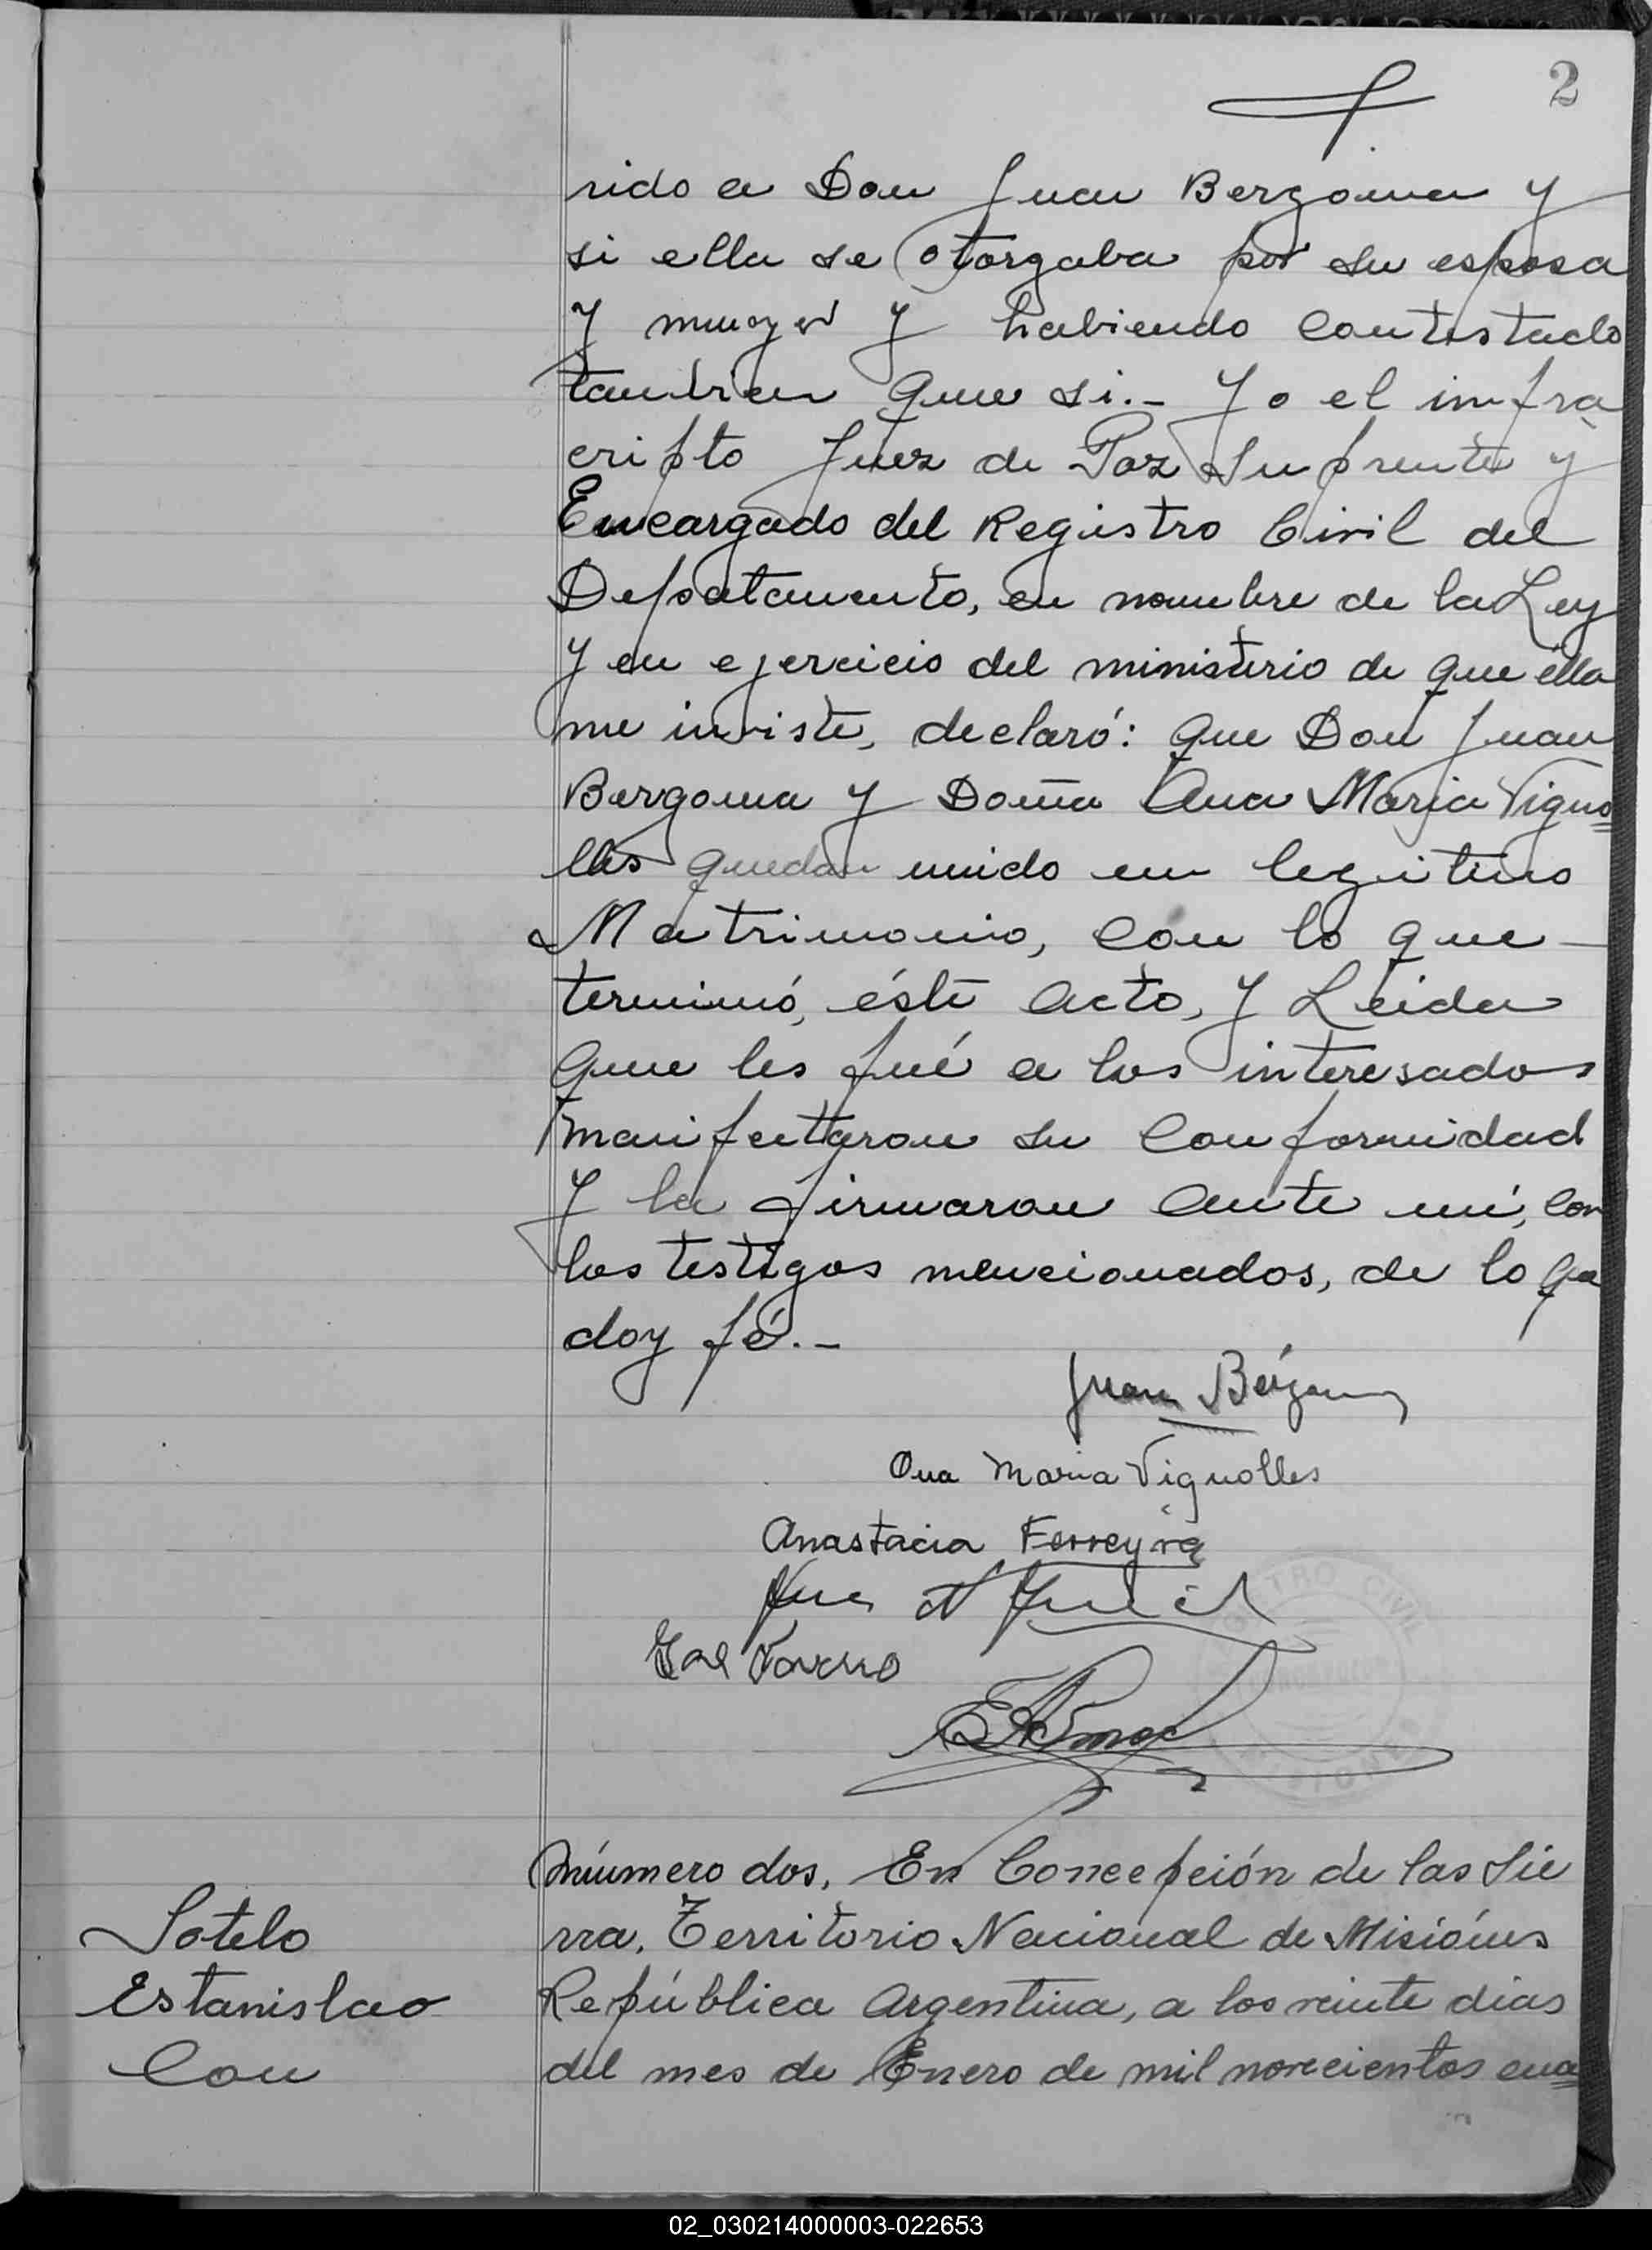 2
rido a Don Juan Bergoma y
si ella se otorgaba por su esposa
y muger y habiendo contestado
tambien que si.- Yo el infra
cripto Juez de Paz Suprente y
Encargado del Registro Civil del
Depatamento, en nombre de la Ley
y en ejercicio del ministerio de que élla
me inviste, declaró: que Don Juan
Bergoma y Doña Ana Maria Vigno=
lles quedan unido en legitimo
Matrimonio, con lo que
terminó, éste acto, y Leida
que les fué a los interesados
manifestaron su conformidad
y la firmaron ante mi, con
los testigos mencionados, de lo que
doy fé.-
Juan Bergoma
Ana Maria Vignolles
Anastacia Ferreyra
REGISTRO CIVIL
MISIONES
Número dos, En Concepción de las Sie
rra, Territorio Nacional de Misiónes
República Argentina, a los veinte dias
del mes de Enero de mil novecientos cua=
Sotelo
Estanislao
Con
02_030214000003-022653